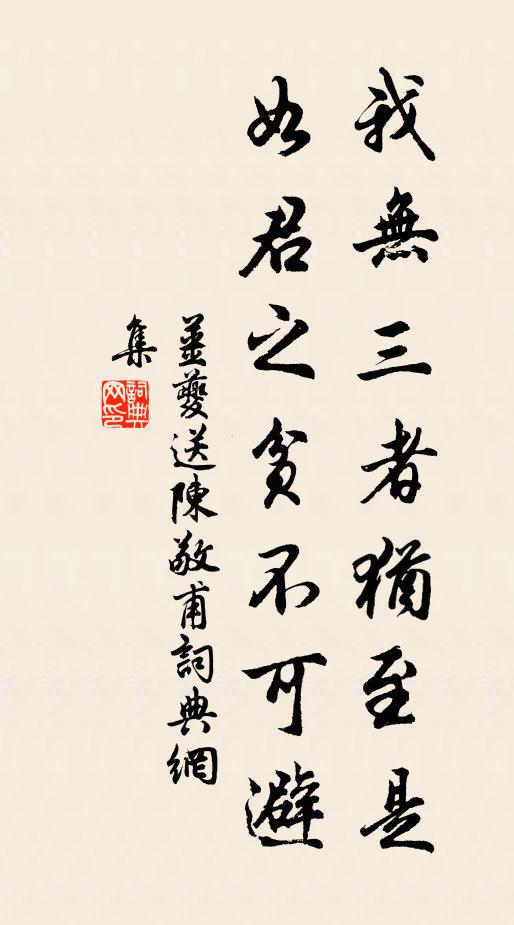 我無三者猶至是
如君之貧不可避
姜夔送陳敬甫詞典網
集
詞典網印